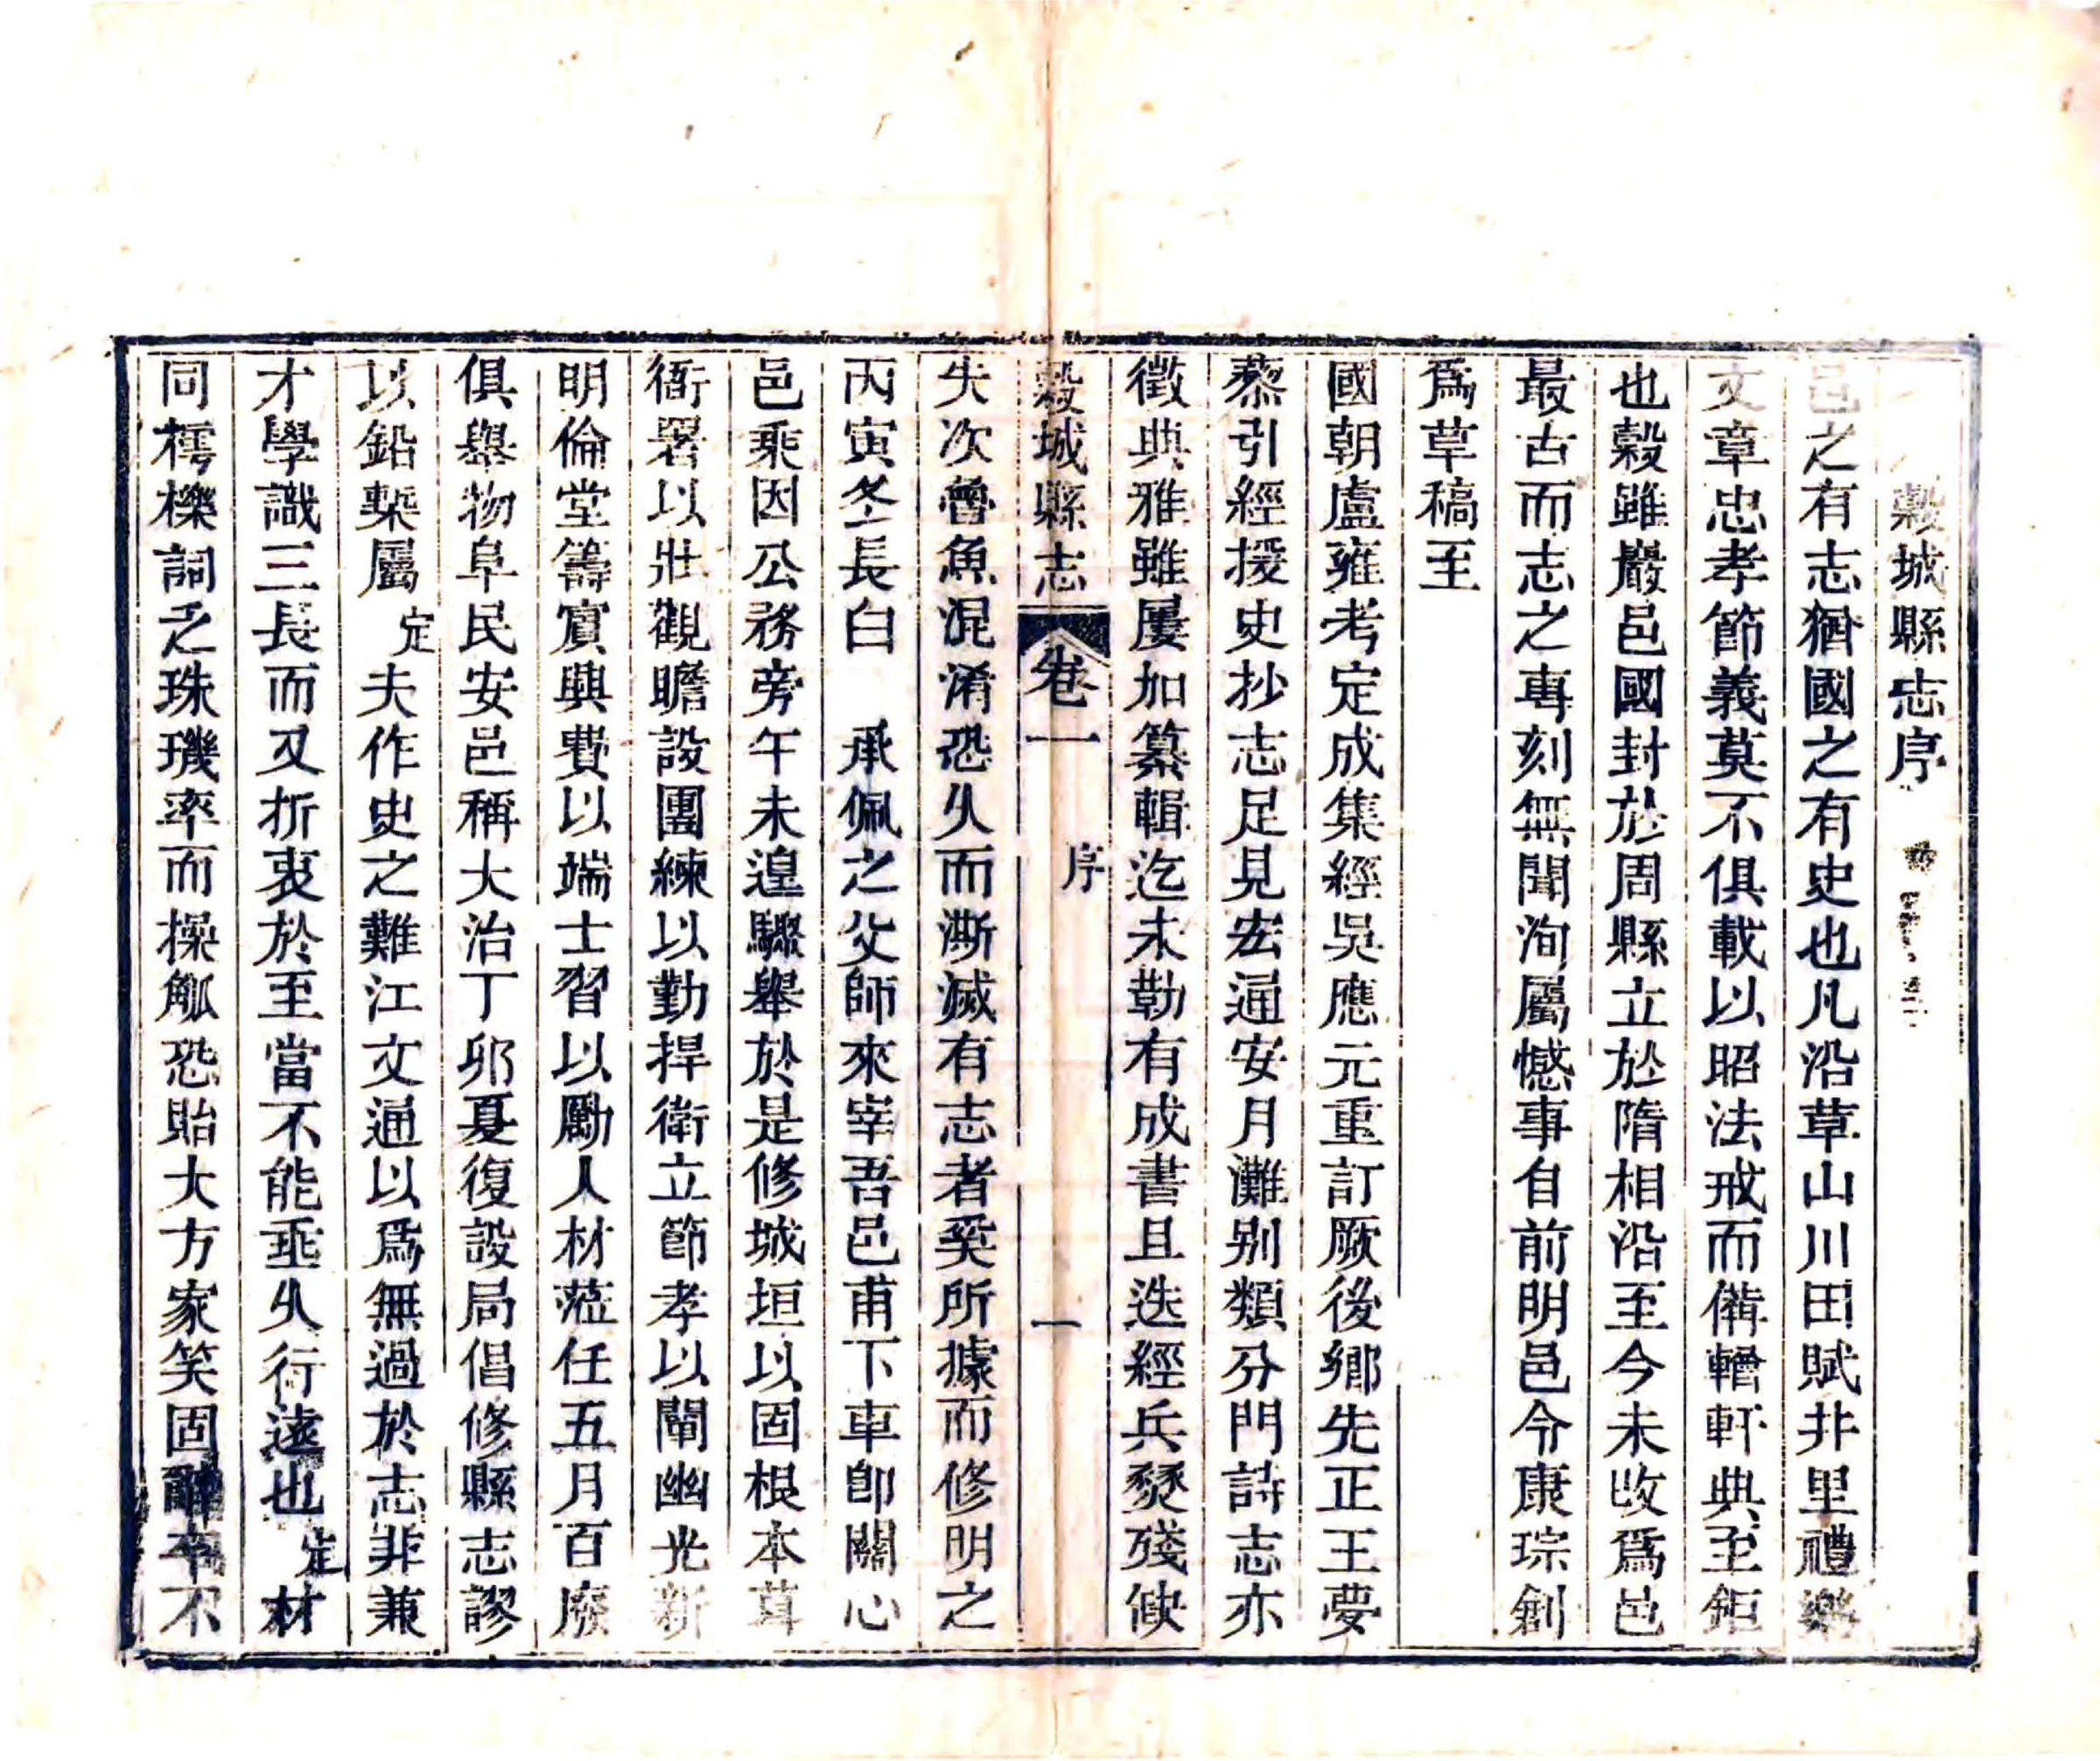 穀城縣志序
邑之有志猶國之有史也凡沿革山川田賦井里禮樂
文章忠孝節義莫不俱載以昭法戒而備輶軒典至鉅
也穀雖巖邑國封於周縣立於隋相沿至今未改爲邑
最古而志之專刻無聞洵屬憾事自前明邑令康琮創
爲草稿至
國朝盧雍考定成集經吳應元重訂厥後鄉先正王夢
蔡引經援史抄志足見宏通安月灘别類分門詩志亦
徵典雅雖屢加纂輯迄未勒有成書且迭經兵燹殘佚
穀城縣志 卷一 序 一
失次魯魚混淆恐久而澌滅有志者奚所據而修明之
丙寅冬長白 承佩之父師來宰吾邑甫下車卽關心
邑乘因公務旁午未遑驟舉於是修城垣以固根本葺
衙署以壯觀瞻設團練以勤捍衛立節孝以闡幽光新
明倫堂籌賓興費以端士習以勵人材蒞任五月百廢
俱舉物阜民安邑稱大治丁卯夏復設局倡修縣志謬
以鉛槧屬定夫作史之難江文通以爲無過於志非兼
才學識三長而又折衷於至當不能垂久行遠也定材
同樗櫟詞乏珠璣率而操觚恐貽大方家笑固辭卒不